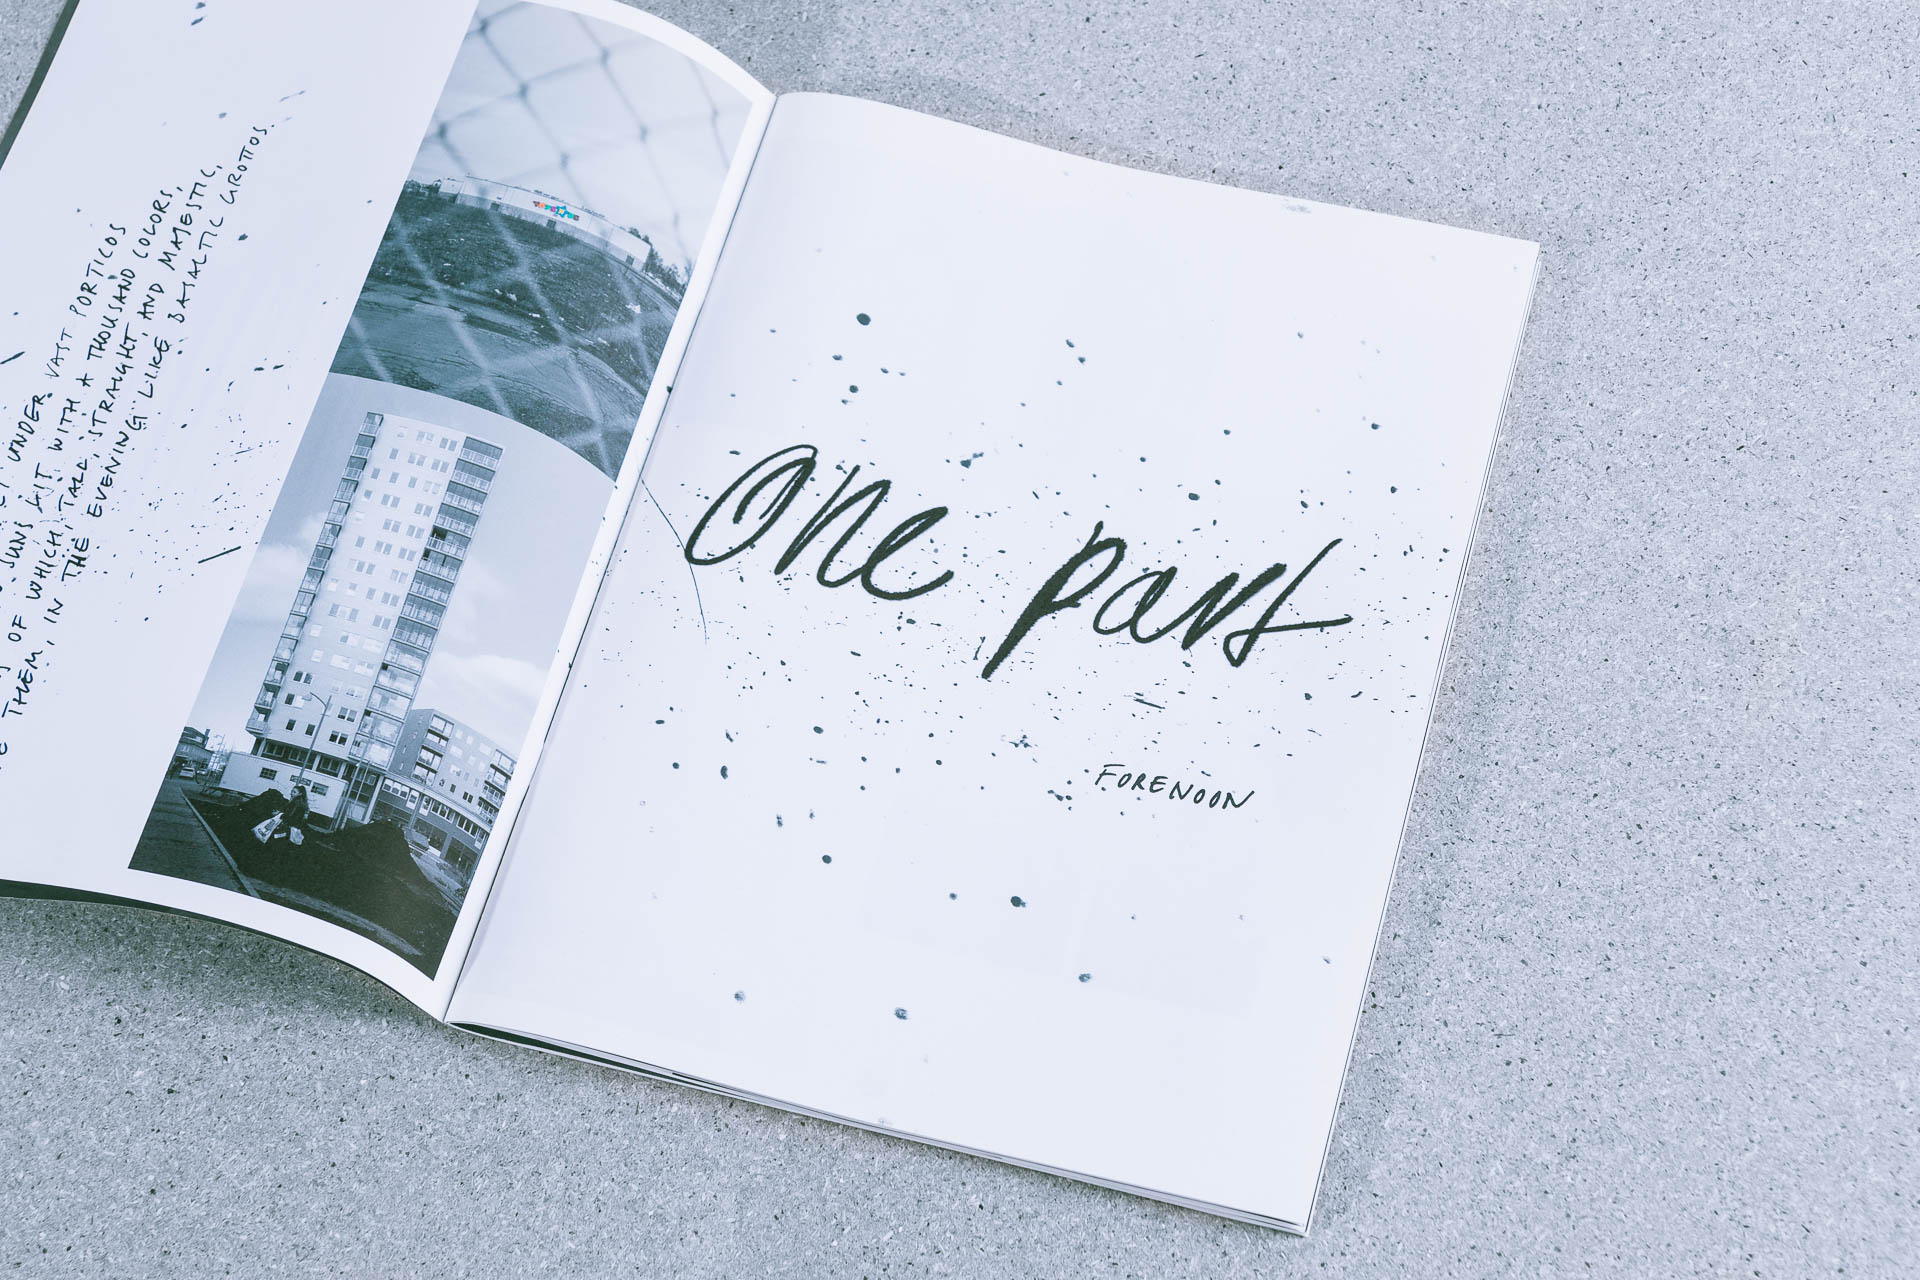 UNDER VAST PORTICOS
SUNS LIT WITH A THOUSAND COLORS,
OF WHICH, TALL, STRAIGHT, AND MAJESTIC,
THEM, IN THE EVENING LIKE BASALTIC GROTTOS.
one part
FORENOON